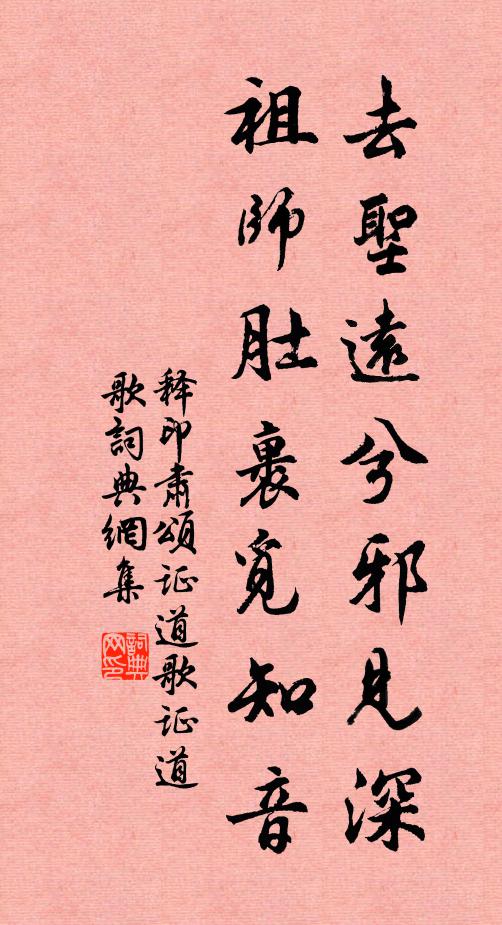 去聖遠兮邪見深
祖師肚裏覓知音
释印肃頌证道歌证道
歌詞典網集
詞典網印